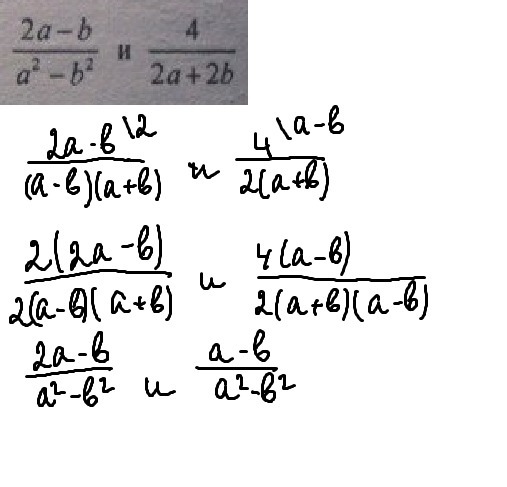 (2a - b)/(a² - b²) и 4/(2a + 2b)
(2a - b \2)/((a - b)(a + b)) и (4 \a - b)/(2(a + b))
(2(2a - b))/(2(a - b)(a + b)) и (4(a - b))/(2(a + b)(a - b))
(2a - b)/(a² - b²) и (a - b)/(a² - b²)